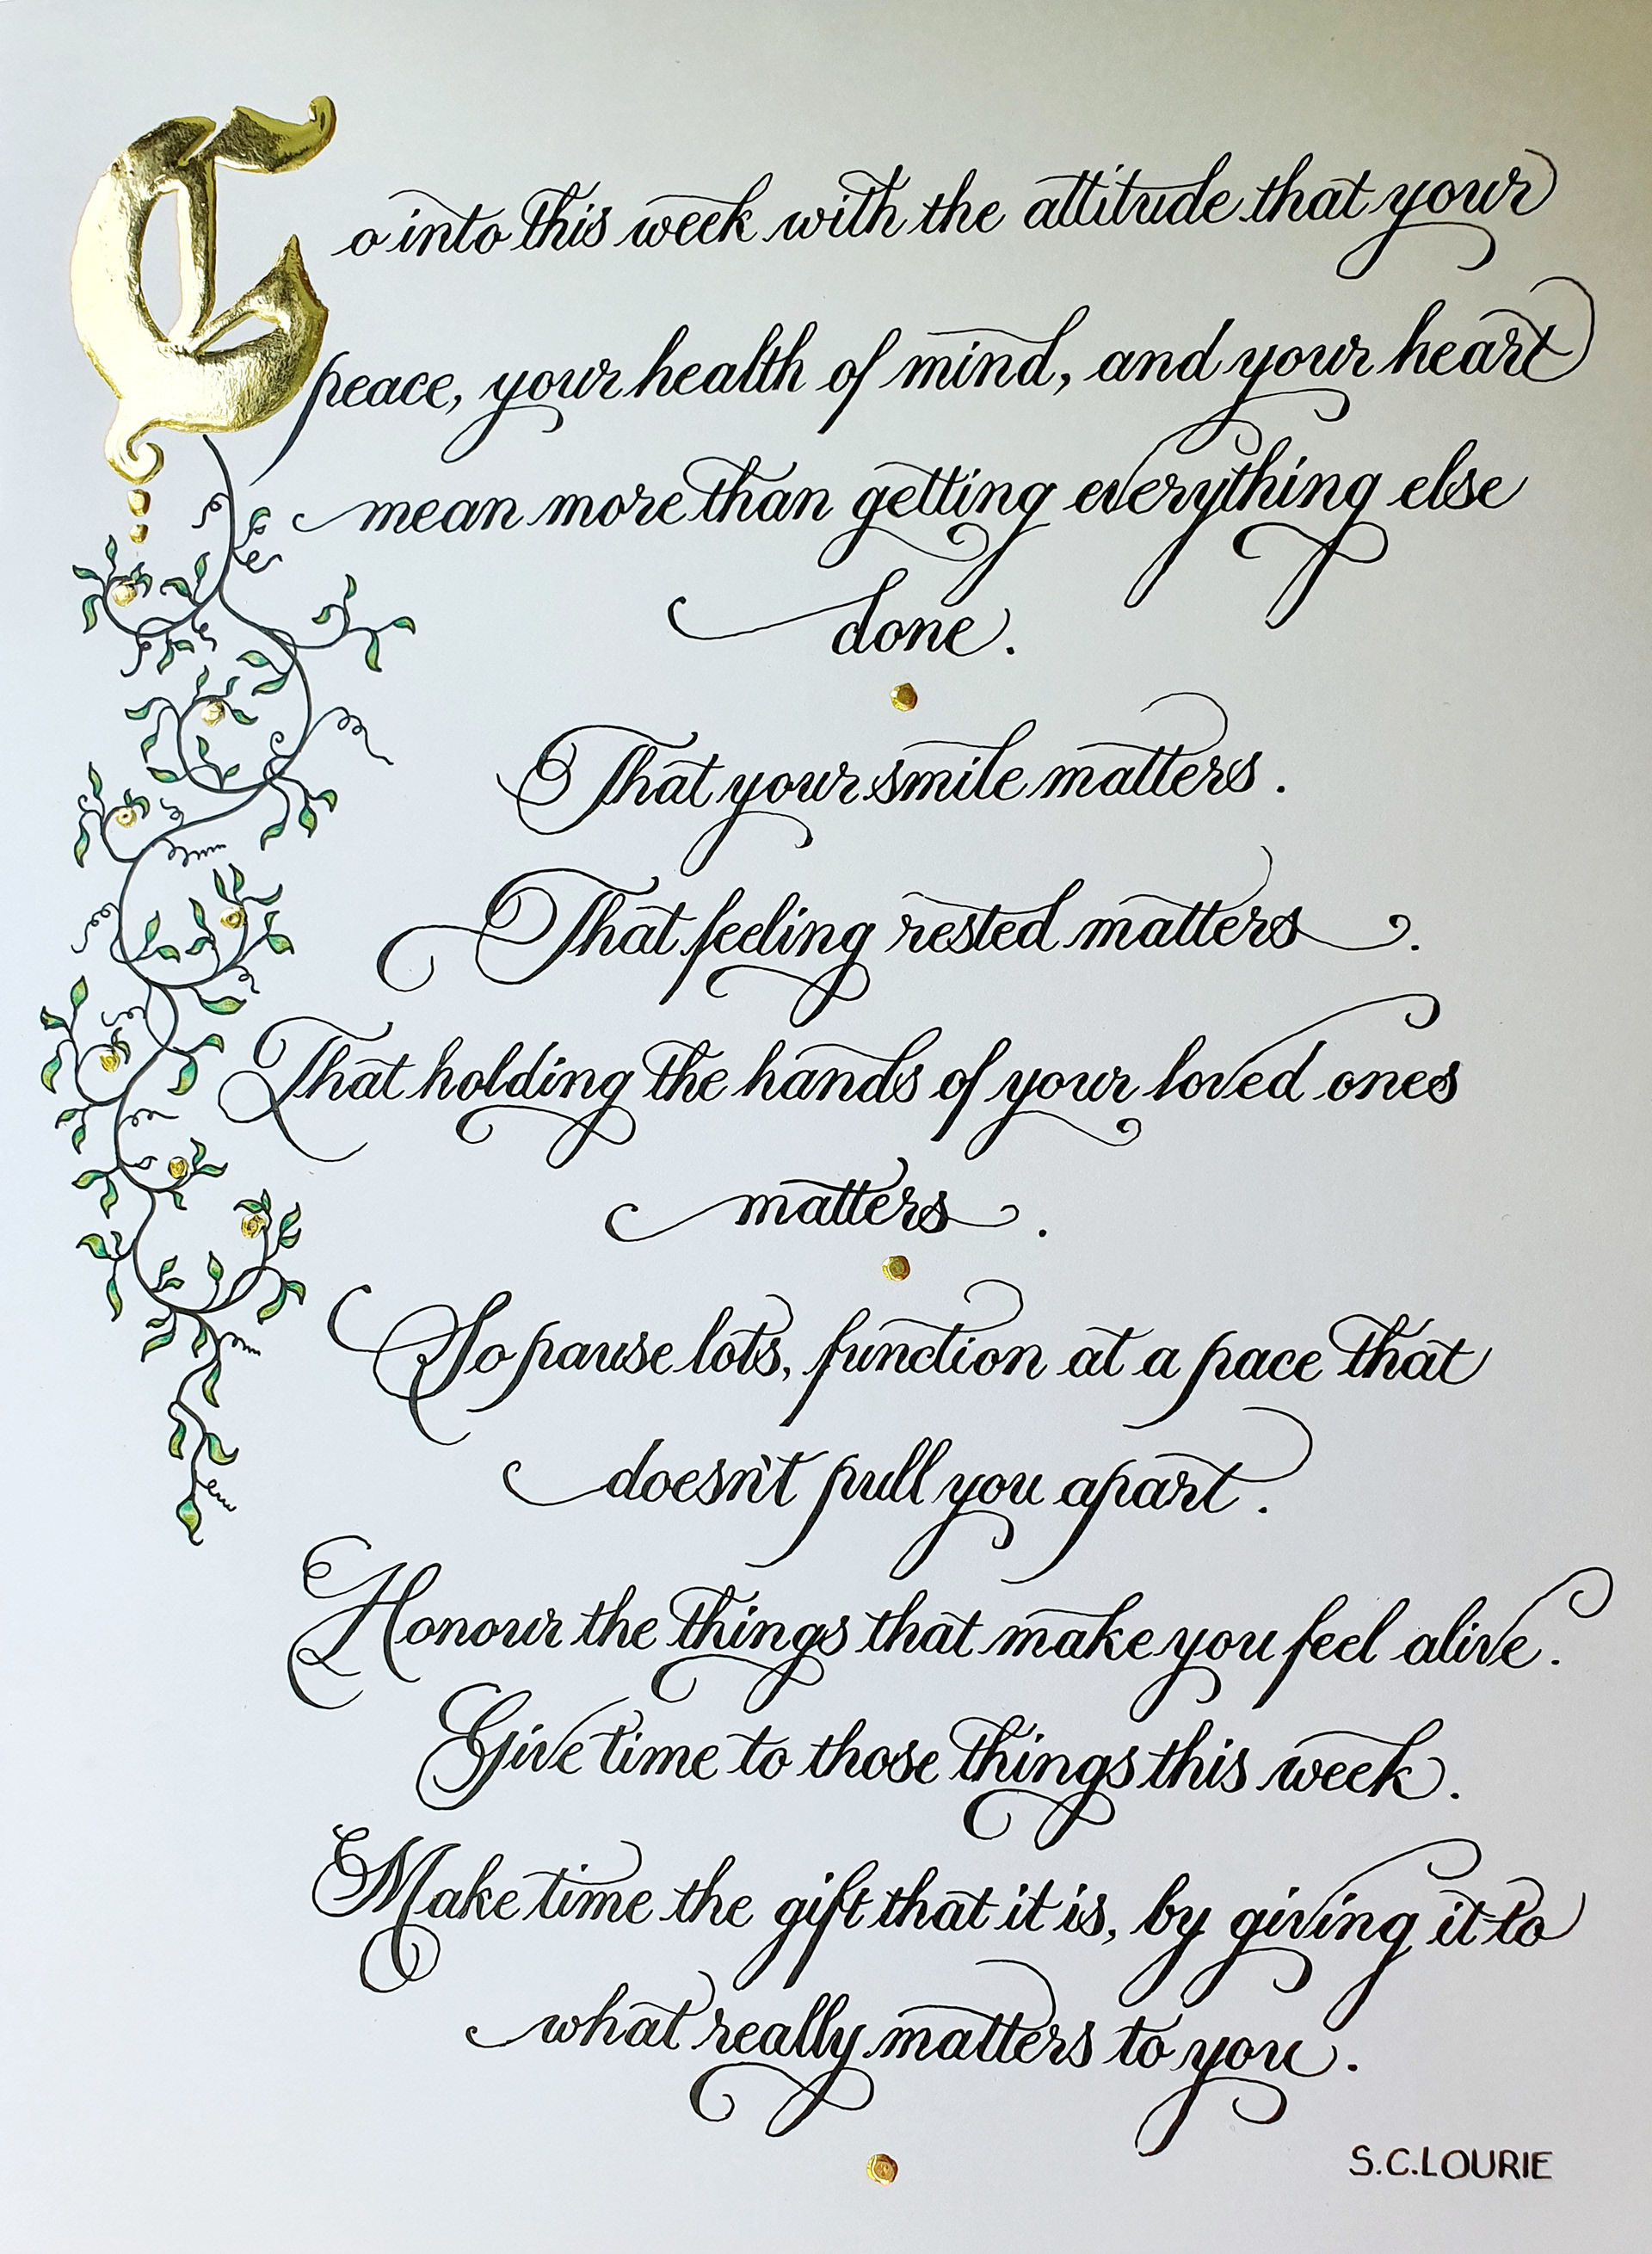 Go into this week with the attitude that your
peace, your health of mind, and your heart
mean more than getting everything else
done.
That your smile matters.
That feeling rested matters.
That holding the hands of your loved ones
matters.
So pause lots, function at a pace that
doesn't pull you apart.
Honour the things that make you feel alive.
Give time to those things this week.
Make time the gift that it is, by giving it to
what really matters to you.
S.C.LOURIE